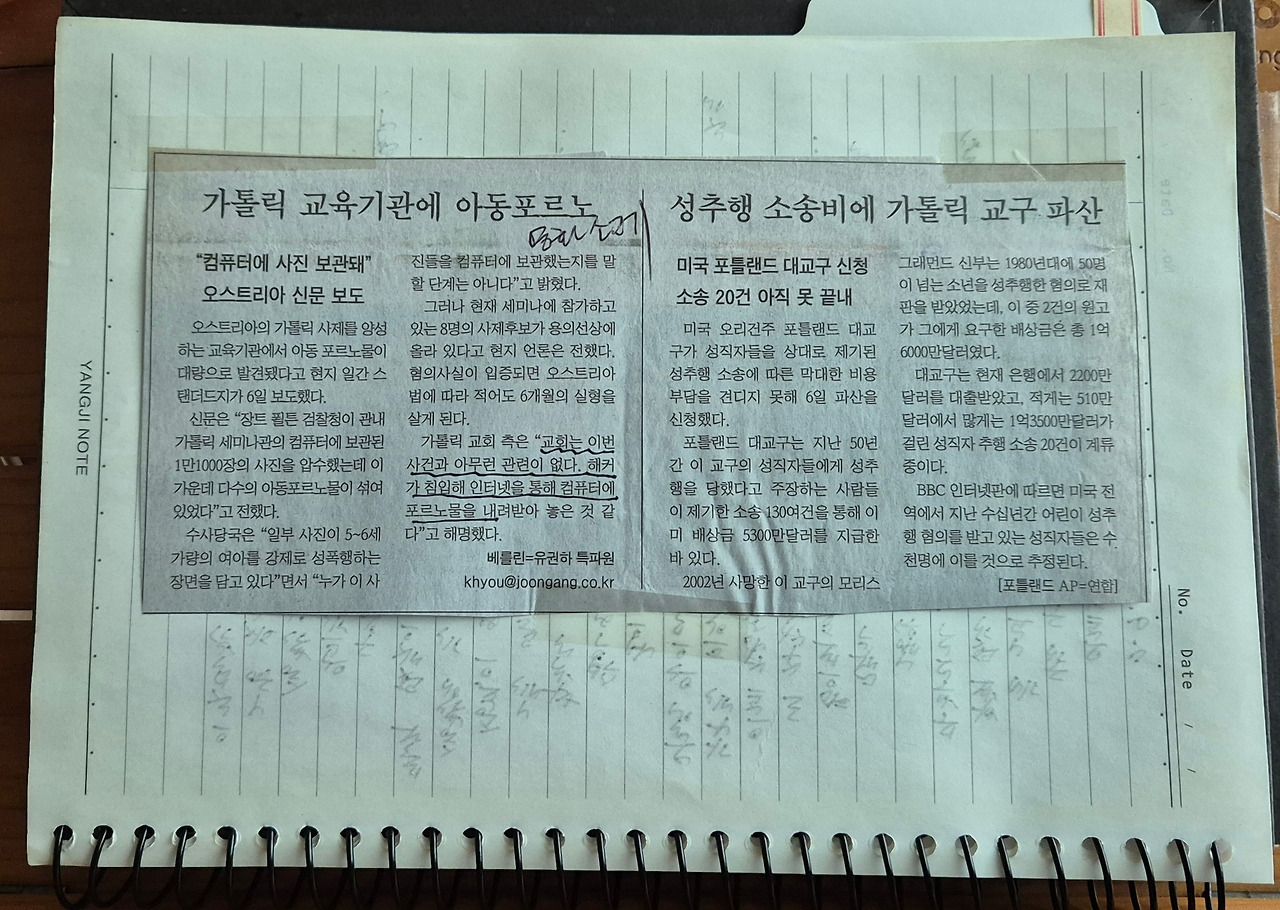 가톨릭 교육기관에 아동포르노
"컴퓨터에 사진 보관돼"
오스트리아 신문 보도
오스트리아의 가톨릭 사제를 양성
하는 교육기관에서 아동 포르노물이
대량으로 발견됐다고 현지 일간 스
탠더드지가 6일 보도했다.
신문은 "장트 푈튼 검찰청이 관내
가톨릭 세미나관의 컴퓨터에 보관된
1만1000장의 사진을 압수했는데 이
가운데 다수의 아동포르노물이 섞여
있었다"고 전했다.
수사당국은 "일부 사진이 5~6세
가량의 여아를 강제로 성폭행하는
장면을 담고 있다"면서 "누가 이 사
진들을 컴퓨터에 보관했는지를 말
할 단계는 아니다"고 밝혔다.
그러나 현재 세미나에 참가하고
있는 8명의 사제후보가 용의선상에
올라 있다고 현지 언론은 전했다.
혐의사실이 입증되면 오스트리아
법에 따라 적어도 6개월의 실형을
살게 된다.
가톨릭 교회 측은 "교회는 이번
사건과 아무런 관련이 없다. 해커
가 침입해 인터넷을 통해 컴퓨터에
포르노물을 내려받아 놓은 것 같
다"고 해명했다.
베를린=유권하 특파원
khyou@joongang.co.kr
성추행 소송비에 가톨릭 교구 파산
미국 포틀랜드 대교구 신청
소송 20건 아직 못 끝내
미국 오리건주 포틀랜드 대교
구가 성직자들을 상대로 제기된
성추행 소송에 따른 막대한 비용
부담을 견디지 못해 6일 파산을
신청했다.
포틀랜드 대교구는 지난 50년
간 이 교구의 성직자들에게 성추
행을 당했다고 주장하는 사람들
이 제기한 소송 130여건을 통해 이
미 배상금 5300만달러를 지급한
바 있다.
2002년 사망한 이 교구의 모리스
그래먼드 신부는 1980년대에 50명
이 넘는 소년을 성추행한 혐의로 재
판을 받았었는데, 이 중 2건의 원고
가 그에게 요구한 배상금은 총 1억
6000만달러였다.
대교구는 현재 은행에서 2200만
달러를 대출받았고, 적게는 510만
달러에서 많게는 1억3500만달러가
걸린 성직자 추행 소송 20건이 계류
중이다.
BBC 인터넷판에 따르면 미국 전
역에서 지난 수십년간 어린이 성추
행 혐의를 받고 있는 성직자들은 수
천명에 이를 것으로 추정된다.
[포틀랜드 AP=연합]
YANGJI NOTE
No.
Date / /